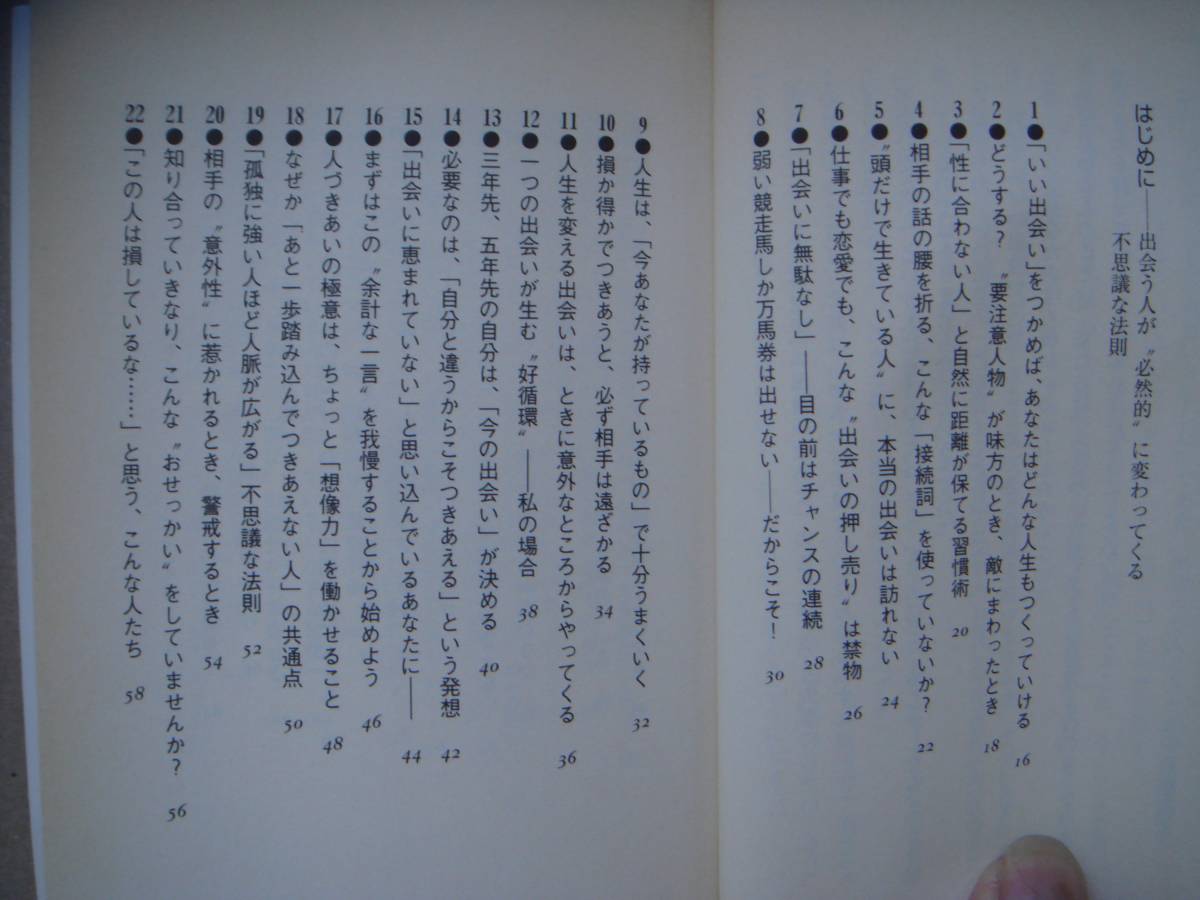 はじめに――出会う人が〝必然的〟に変わってくる
不思議な法則
1●「いい出会い」をつかめば、あなたはどんな人生もつくっていける 16
2●どうする？ 〝要注意人物〟が味方のとき、敵にまわったとき 18
3●「性に合わない人」と自然に距離が保てる習慣術 20
4●相手の話の腰を折る、こんな「接続詞」を使っていないか？ 22
5●〝頭だけで生きている人〟に、本当の出会いは訪れない 24
6●仕事でも恋愛でも、こんな〝出会いの押し売り〟は禁物 26
7●「出会いに無駄なし」――目の前はチャンスの連続 28
8●弱い競走馬しか万馬券は出せない――だからこそ！ 30
9●人生は、「今あなたが持っているもの」で十分うまくいく 32
10●損か得かでつきあうと、必ず相手は遠ざかる 34
11●人生を変える出会いは、ときに意外なところからやってくる 36
12●一つの出会いが生む〝好循環〟――私の場合 38
13●三年先、五年先の自分は、「今の出会い」が決める 40
14●必要なのは、「自分と違うからこそつきあえる」という発想 42
15●「出会いに恵まれていない」と思い込んでいるあなたに―― 44
16●まずはこの〝余計な一言〟を我慢することから始めよう 46
17●人づきあいの極意は、ちょっと「想像力」を働かせること 48
18●なぜか「あと一歩踏み込んでつきあえない人」の共通点 50
19●「孤独に強い人ほど人脈が広がる」不思議な法則 52
20●相手の〝意外性〟に惹かれるとき、警戒するとき 54
21●知り合っていきなり、こんな〝おせっかい〟をしていませんか？ 56
22●「この人は損しているな……」と思う、こんな人たち 58